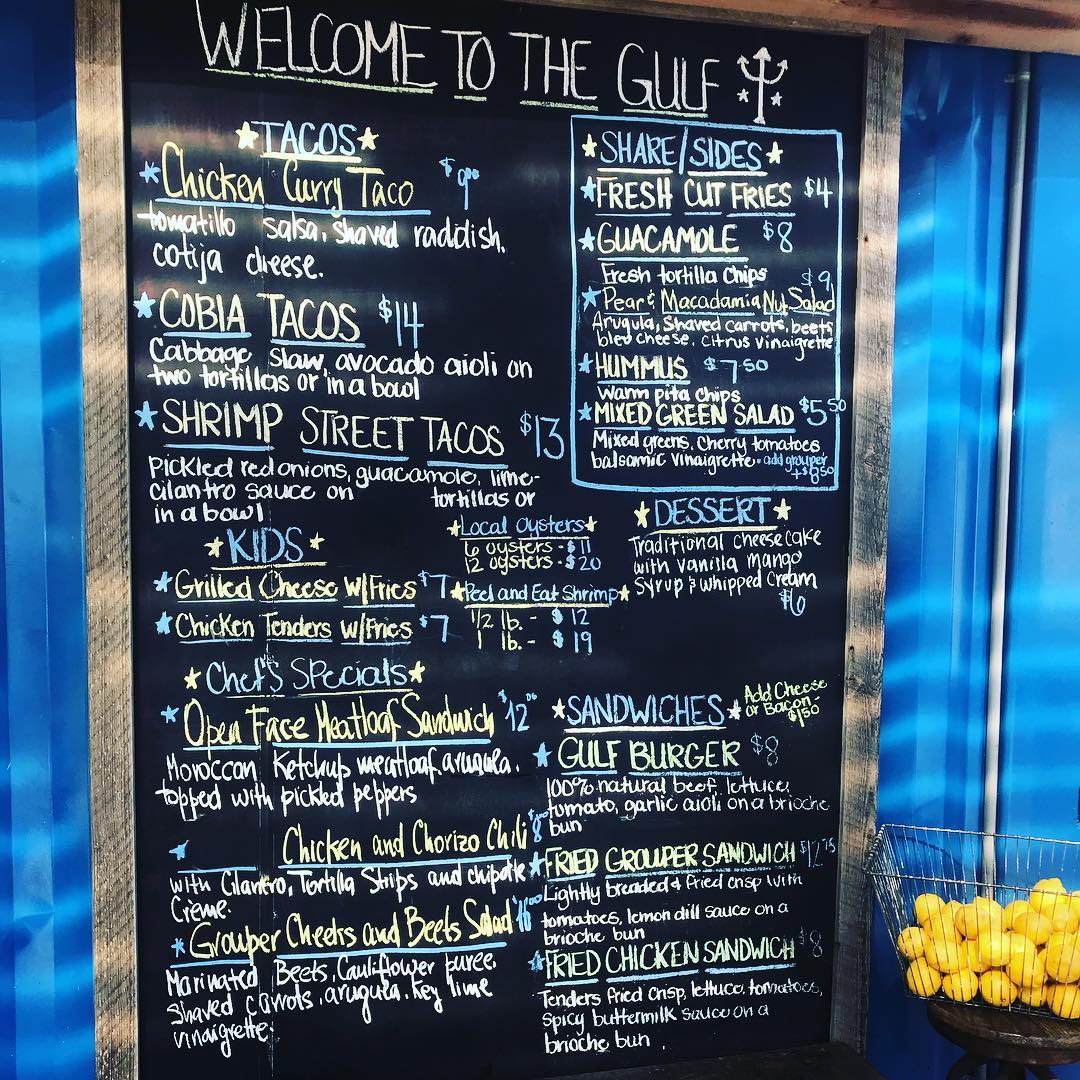 WELCOME TO THE GULF
TACOS
Chicken Curry Taco $9.00
tomatillo salsa, shaved raddish,
cotija cheese.
COBIA TACOS $14
Cabbage slaw, avocado aioli on
two tortillas or in a bowl
SHRIMP STREET TACOS $13
Pickled red onions, guacamole, lime-
cilantro sauce on tortillas or
in a bowl
SHARE/SIDES
FRESH CUT FRIES $4
GUACAMOLE $8
Fresh tortilla chips
$9
Pear & Macadamia Nut Salad
Arugula, Shaved carrots, beets
bleu cheese, citrus vinaigrette
HUMMUS $7.50
warm pita chips
MIXED GREEN SALAD $5.50
Mixed greens, cherry tomatoes
balsamic vinaigrette - add grouper
+$8.50
KIDS
Grilled Cheese w/Fries $7
Chicken Tenders w/Fries $7
Local Oysters
6 oysters - $11
12 oysters - $20
Peel and Eat Shrimp
1/2 lb. - $12
1 lb. - $19
DESSERT
Traditional cheesecake
with vanilla mango
syrup & whipped cream
$6
Chef's Specials
Open Face Meatloaf Sandwich $12.00
Moroccan Ketchup meatloaf, arugula,
topped with pickled peppers
Chicken and Chorizo Chili $8.00
with Cilantro, Tortilla Strips and chipotle
Crème.
Grouper Cheeks and Beets Salad $16.00
Marinated Beets, Cauliflower puree,
shaved carrots, arugula, key lime
vinaigrette
SANDWICHES
Add Cheese
or Bacon -
$1.50
GULF BURGER $8
100% natural beef, lettuce,
tomato, garlic aioli on a brioche
bun
FRIED GROUPER SANDWICH $12.75
Lightly breaded & fried crisp with
tomatoes, lemon dill sauce on a
brioche bun
FRIED CHICKEN SANDWICH $8
Tenders fried crisp, lettuce, tomatoes,
spicy buttermilk sauce on a
brioche bun